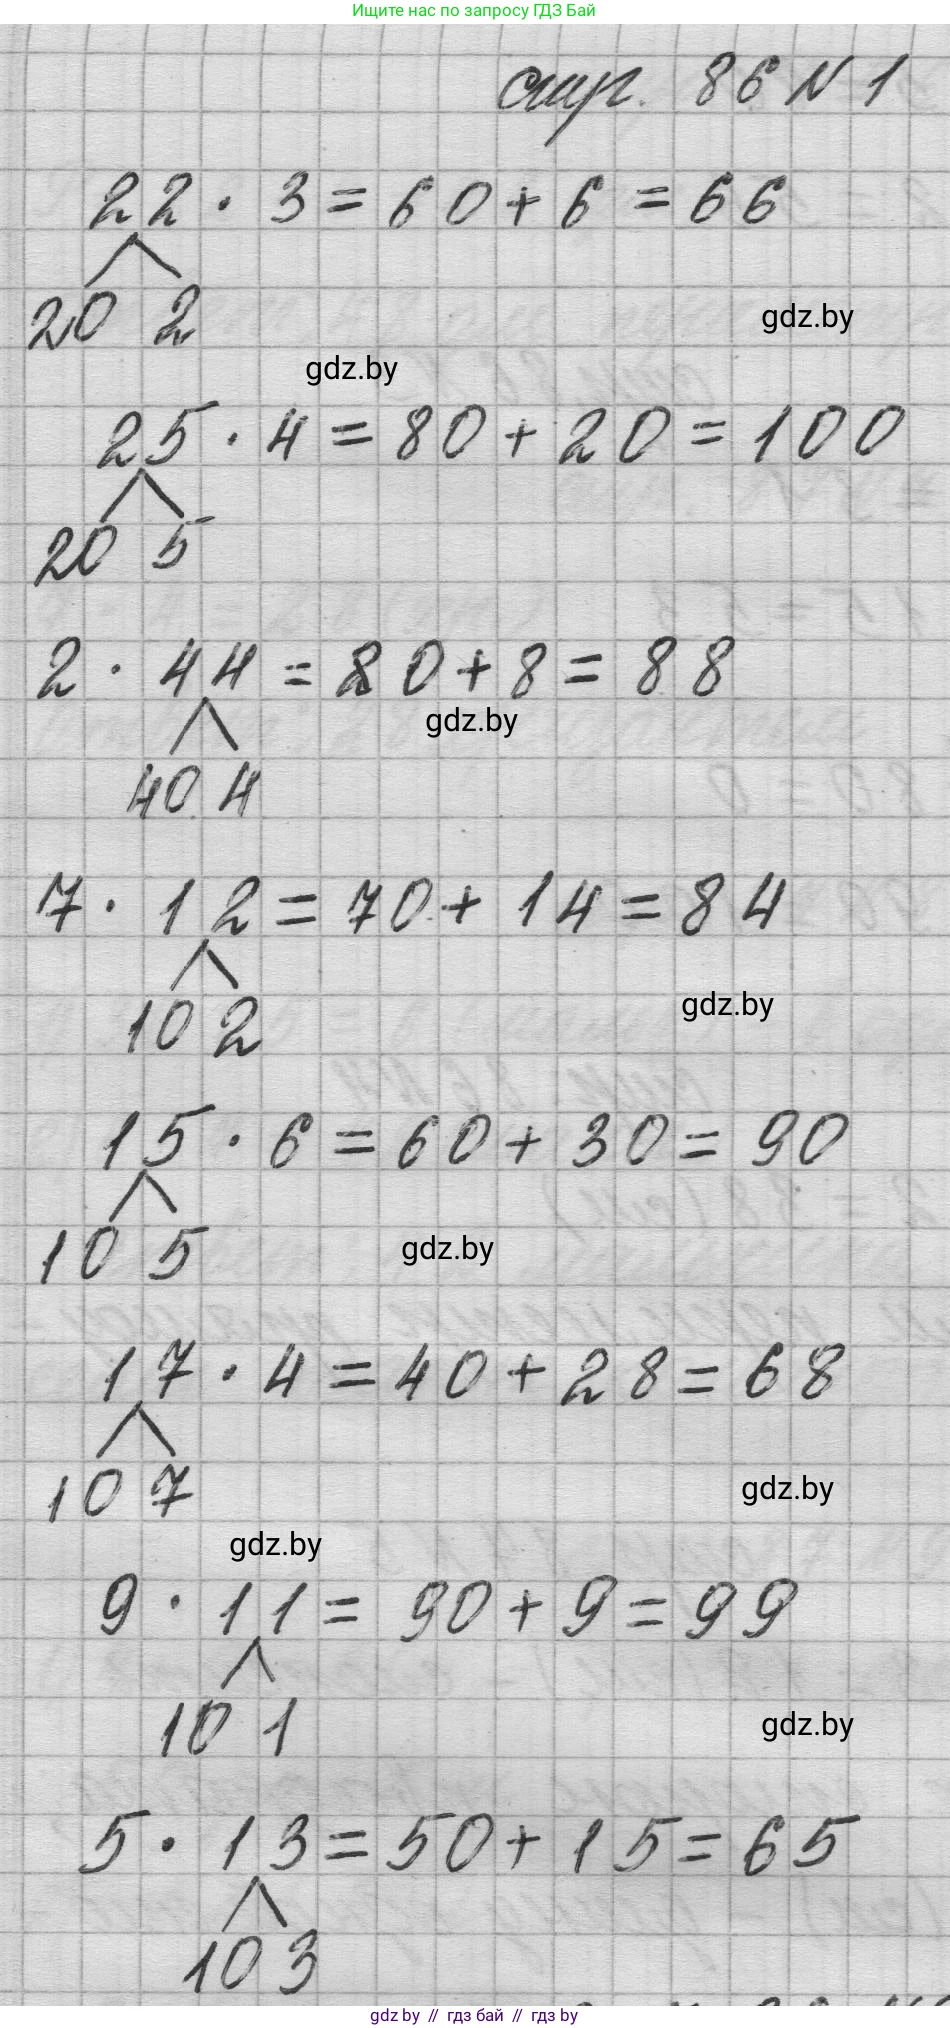 Ищите нас по запросу ГДЗ Бай
стр. 86 № 1
22 · 3 = 60 + 6 = 66
20 2
gdz.by
gdz.by
25 · 4 = 80 + 20 = 100
20 5
2 · 44 = 80 + 8 = 88
gdz.by
40 4
7 · 12 = 70 + 14 = 84
10 2
gdz.by
15 · 6 = 60 + 30 = 90
10 5
gdz.by
17 · 4 = 40 + 28 = 68
10 7
gdz.by
gdz.by
9 · 11 = 90 + 9 = 99
10 1
gdz.by
5 · 13 = 50 + 15 = 65
10 3
gdz.by // гдз бай // гдз by